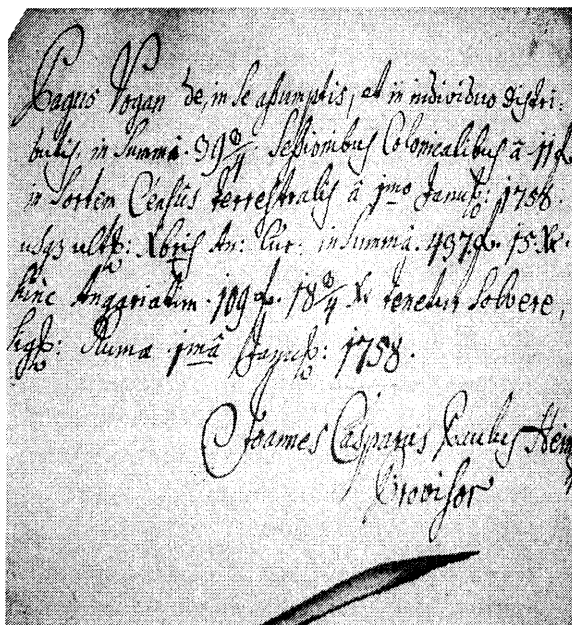 Pagus Vogan de, in se assumptis, et in individuo distri:
butis, in Summa. 39 3/4 Sessionibus Colonicalibus â 11 f.
in Sortem Censûs terrestralis â 1mo Januar: 1758.
usq3 ult: Xbris An: Cur: in Summa. 437 f. 15 Xr.
hinc Angariatim. 109 f. 18 3/4 Xr tenetur Solvere,
Sig: Ruma 1mâ Januar: 1758.
Joannes Casparus Paulus
Provisor